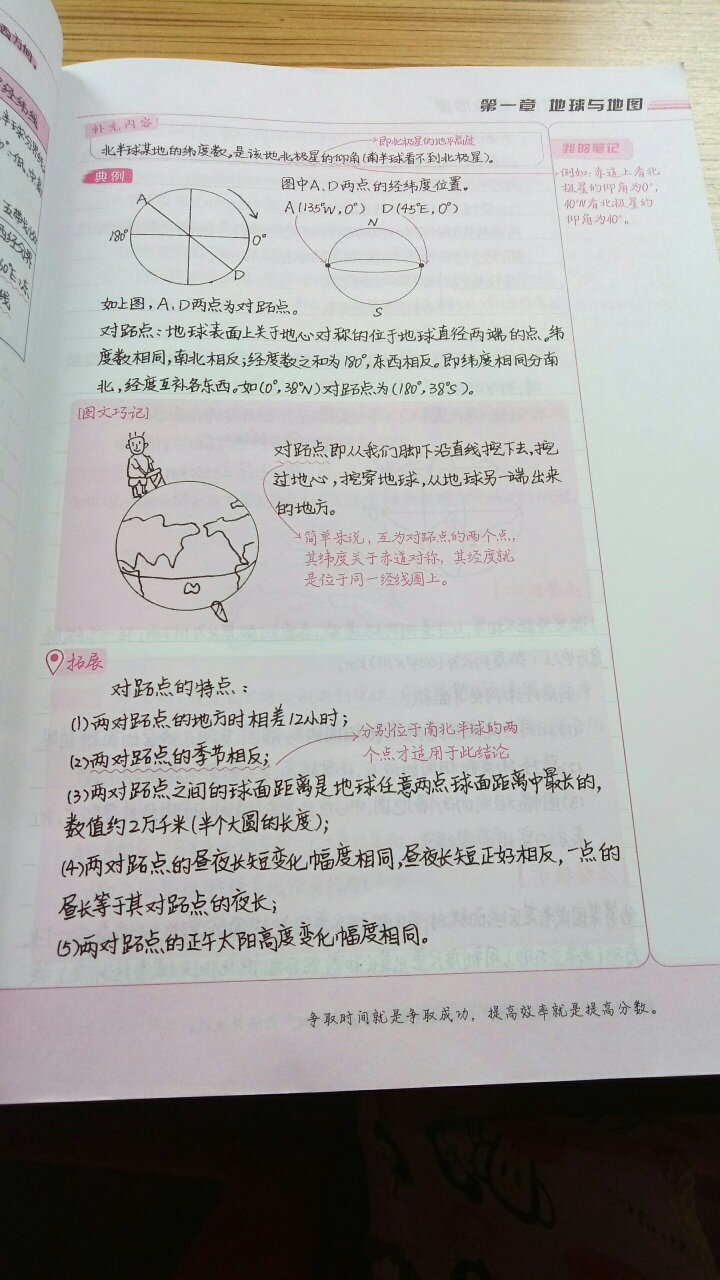 西方向。
经纬线
第一章 地球与地图
补充内容
即北极星的地平高度
北半球某地的纬度数,是该地北极星的仰角(南半球看不到北极星)。
我的笔记
例如:赤道上看北
极星的仰角为0°,
40°N看北极星的
仰角为40°。
典例
图中A、D两点的经纬度位置。
A(135°W,0°) D(45°E,0°)
A
180°
0°
D
N
S
如上图,A、D两点为对跖点。
对跖点:地球表面上关于地心对称的位于地球直径两端的点。纬
度数相同,南北相反;经度数之和为180°,东西相反。即纬度相同分南
北,经度互补各东西。如(0°,38°N)对跖点为(180°,38°S)。
[图文巧记]
对跖点即从我们脚下沿直线挖下去,挖
过地心,挖穿地球,从地球另一端出来
的地方。
简单来说,互为对跖点的两个点,
其纬度关于赤道对称,其经度就
是位于同一经线圈上。
拓展
对跖点的特点:
(1)两对跖点的地方时相差12小时;
(2)两对跖点的季节相反;
分别位于南北半球的两
个点才适用于此结论
(3)两对跖点之间的球面距离是地球任意两点球面距离中最长的,
数值约2万千米(半个大圆的长度);
(4)两对跖点的昼夜长短变化幅度相同,昼夜长短正好相反,一点的
昼长等于其对跖点的夜长;
(5)两对跖点的正午太阳高度变化幅度相同。
争取时间就是争取成功,提高效率就是提高分数。